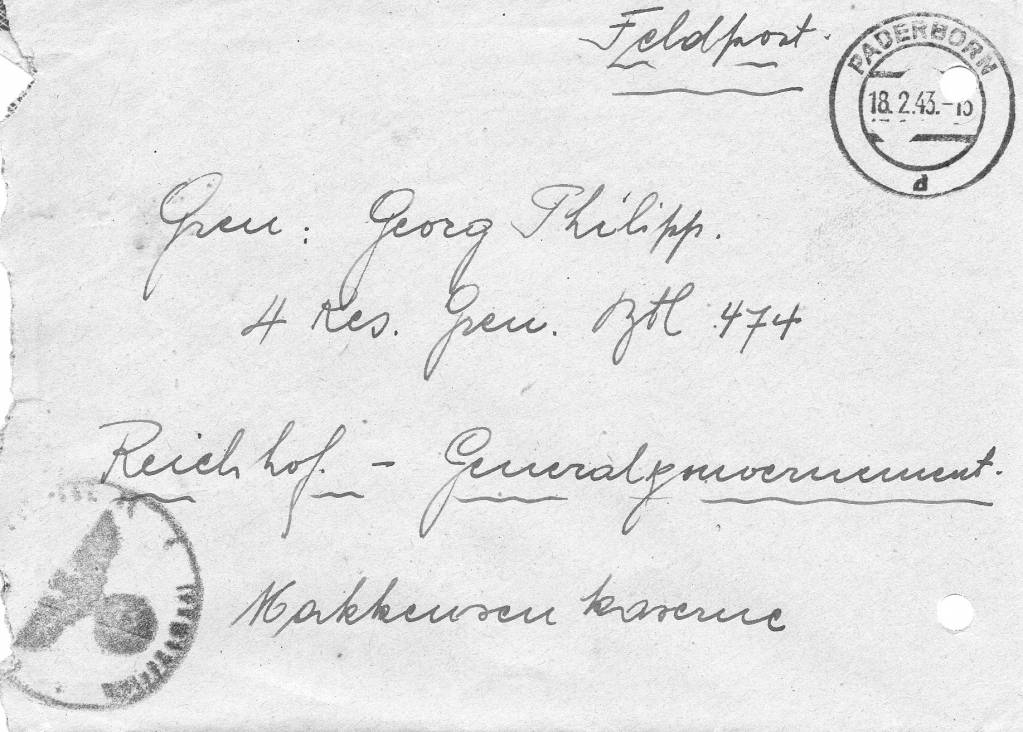 Feldpost.
PADERBORN
18.2.43.-15
d
Gren: Georg Philipp.
4 Res. Gren. Btl 474
Reichhof. - Generalgouvernement.
Makkensen kaserne